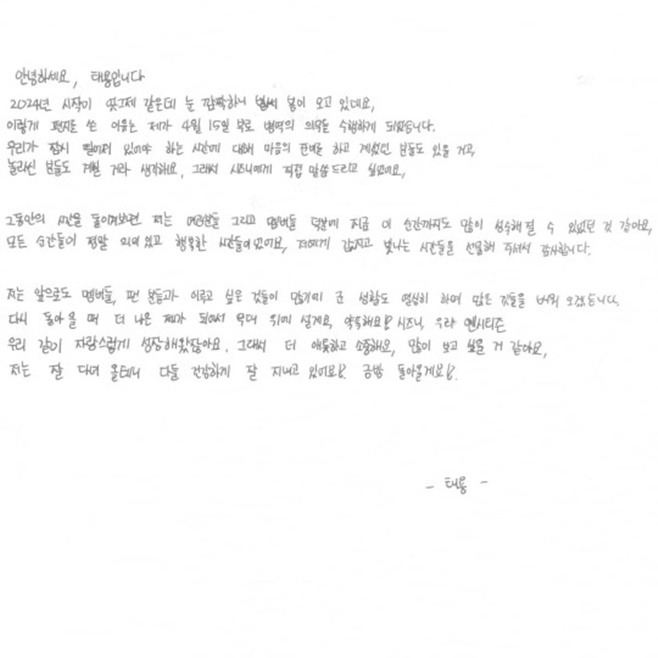 안녕하세요, 태용입니다
2024년 시작이 엊그제 같은데 눈 깜짝하니 벌써 봄이 오고 있네요,
이렇게 편지를 쓴 이유는 제가 4월 15일 부로 병역의 의무를 수행하게 되었습니다.
우리가 잠시 떨어져 있어야 하는 시간에 대해 마음의 준비를 하고 계셨던 분들도 있을 거고,
놀라신 분들도 계실 거라 생각해요, 그래서 시즈니에게 직접 말씀드리고 싶었어요,
그동안의 시간을 돌이켜보면 저는 여러분들 그리고 멤버들 덕분에 지금 이 순간까지도 많이 성숙해질 수 있었던 것 같아요,
모든 순간들이 정말 의미있고 행복한 시간들이었어요, 저에게 값지고 빛나는 시간들을 선물해 주셔서 감사합니다.
저는 앞으로도 멤버들, 팬 분들과 이루고 싶은 것들이 많기에 군 생활도 열심히 하며 많은 것들을 배워 오겠습니다.
다시 돌아올 때 더 나은 제가 되어서 무대 위에 설게요, 약속해요! 시즈니, 우리 엔시티즌
우리 같이 자랑스럽게 성장해왔잖아요. 그래서 더 애틋하고 소중해요, 많이 보고 싶을 거 같아요,
저는 잘 다녀 올테니 다들 건강하게 잘 지내고 있어요! 금방 돌아올게요!
- 태용 -